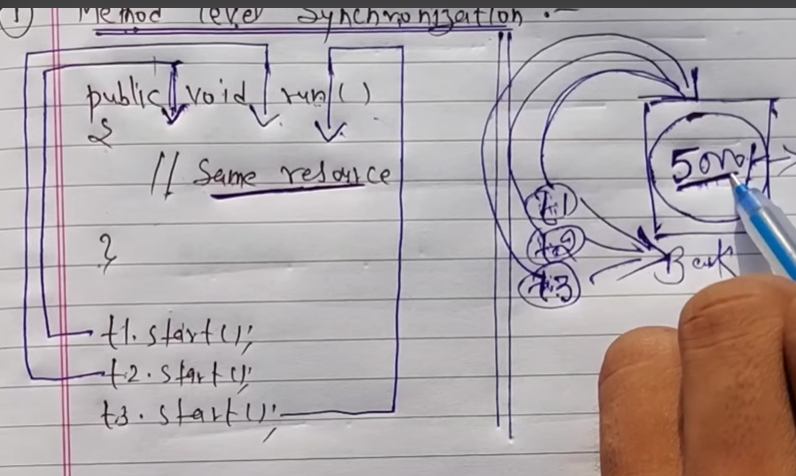 ① Method level Synchronization :-
public void run()
{
// Same resource
}
t1.start();
t2.start();
t3.start();
5000/-
t1
t2
t3
Bank